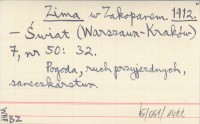 Zima w Zakopanem. 1912.
– Świat (Warszawa-Kraków)
7, nr 50: 32.
Pogoda, ruch przyjezdnych,
saneczkarstwo.
BZ